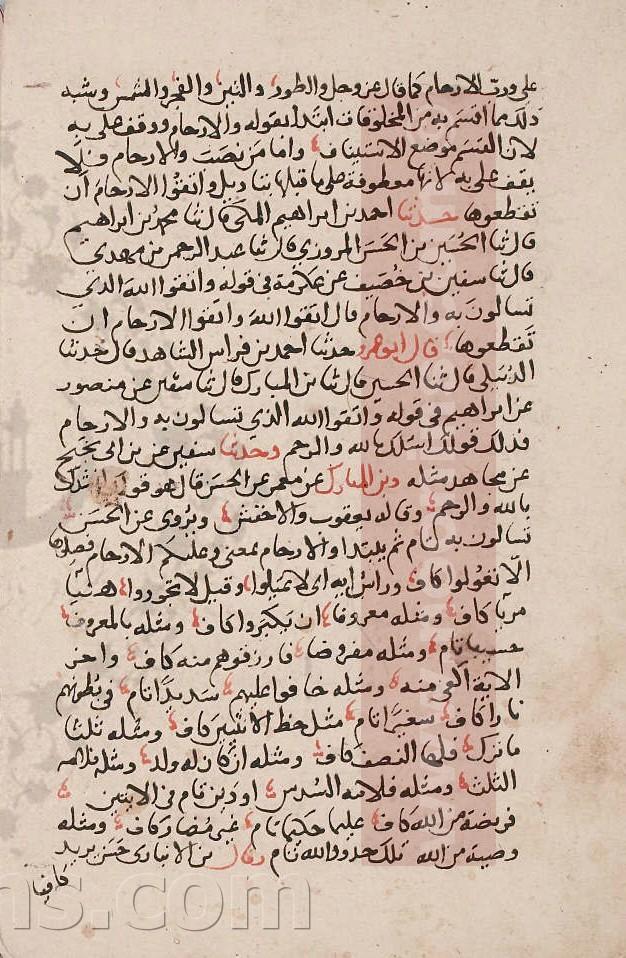 على ورب الارحام كما قال عز وجل والطور والتين والفجر والشمس وشبه
ذلك مما اقسم به من المخلوقات ابتدا بقوله والارحام ووقف على به
لان القسم موضع الاستيناف واما من نصب والارحام فلا
يقف على به لانها معطوفة على ما قبلها بتاويل واتقوا الارحام ان
تقطعوها حدثنا احمد بن ابراهيم المكي قال ثنا محمد بن ابراهيم
قال ثنا الحسين بن الحسن المروزي قال ثنا عبد الرحمن بن مهدي
قال ثنا سفين بن خصيف عن عكرمة في قوله واتقوا الله الذي
تسالون به والارحام قال اتقوا الله واتقوا الارحام ان
تقطعوها قال ابو عمرو حدثنا احمد بن فراس الشاهد قال حدثنا
الديبلي قال ثنا الحسين قال ثنا بن المبارك قال ثنا سفين عن منصور
عن ابراهيم في قوله واتقوا الله الذي تسالون به والارحام
قال ذلك قولك اسلك بالله والرحم وحدثنا سفين عن بن ابي نجيح
عن مجاهد مثله وبن المبارك عن معمر عن الحسن قال هو قولك انشدك
بالله والرحم وقاله يعقوب والاخفش ويروى عن الحسن
تسالون به تام ثم يبتدا والارحام بمعنى وعليكم الارحام فصلوها
الا تعولوا كاف وراس اية اى لا تميلوا وقيل لا تجوروا هنيا
مريا كاف ومثله معروفا ان يكبروا كاف ومثله بالمعروف
حسيبا تام ومثله مفروضا فارزقوهم منه كاف واخر
الاية اكفى منه ومثله خافوا عليهم سديدا تام في بطونهم
نارا كاف سعيرا تام مثل حظ الانثيين كاف ومثله ثلثا
ما ترك فلها النصف كاف ومثله ان كان له ولد ومثله فلامه
الثلث ومثله فلامه السدس او دين تام في الايتين
فريضة من الله كاف عليما حكيما تام غير مضار كاف ومثله
وصية من الله تلك حدود الله تام وقال بن الانباري حسن يريد
كافيا
ns.com